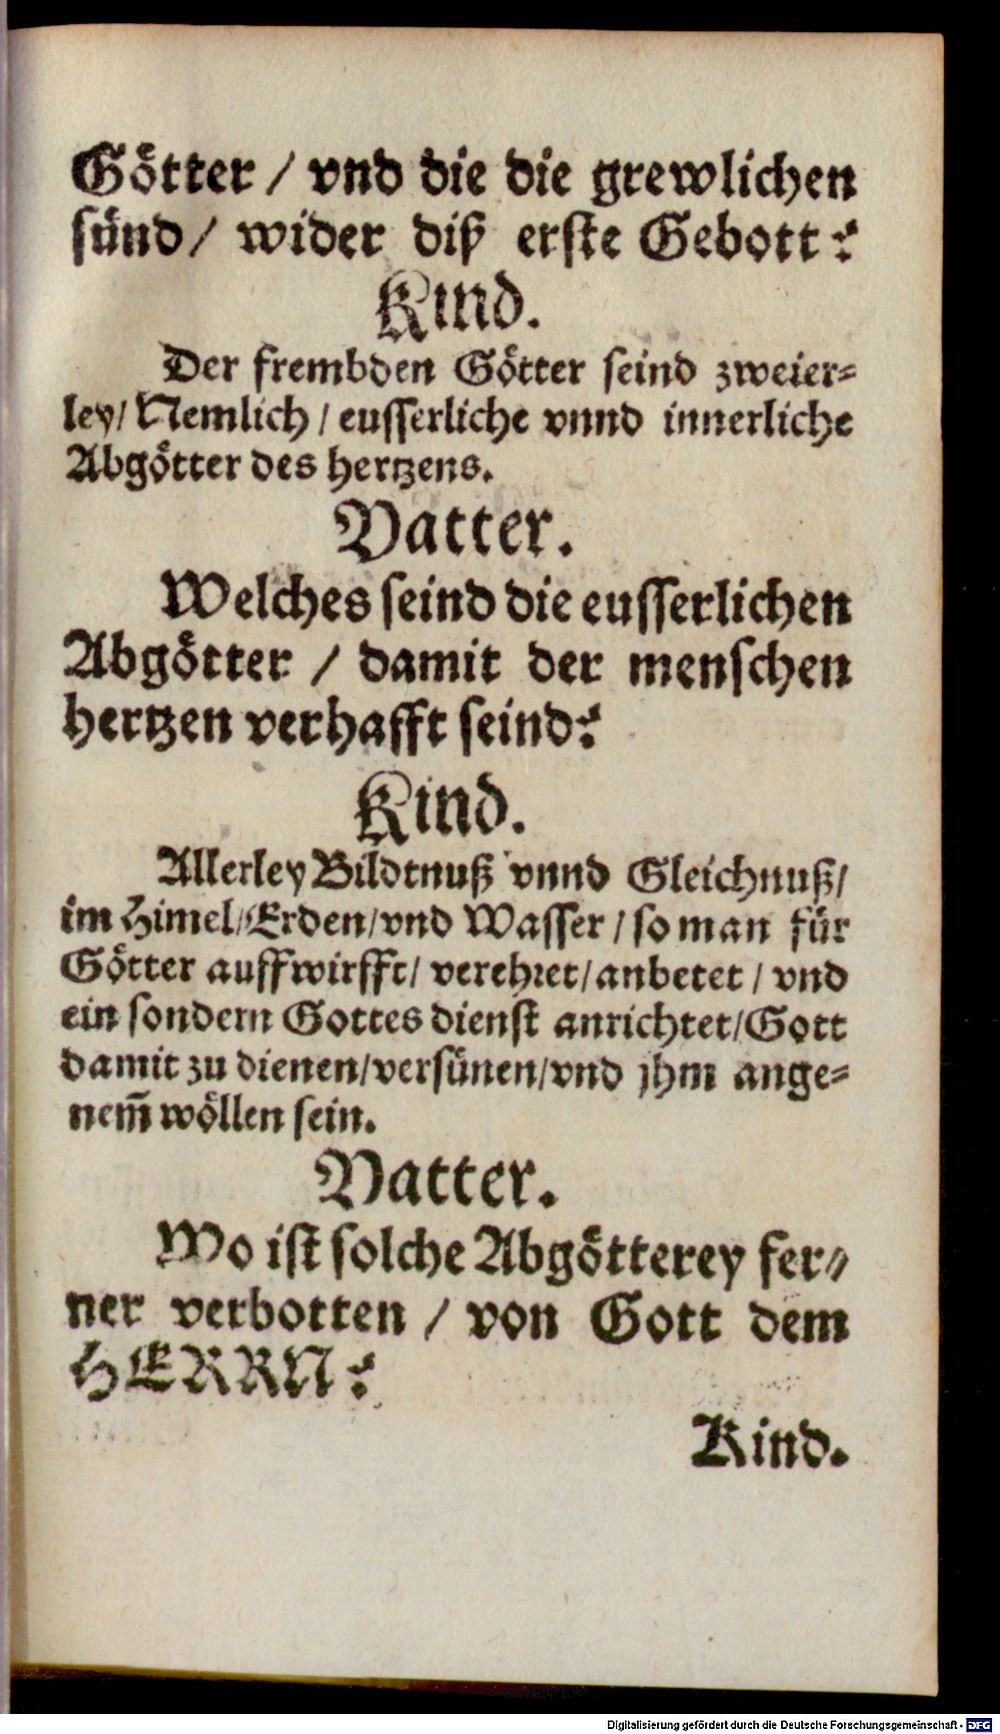 Götter / vnd die die grewlichen
sünd / wider diß erste Gebott?
Kind.
Der frembden Götter seind zweier-
ley / Nemlich / eusserliche vnnd innerliche
Abgötter des hertzens.
Vatter.
Welches seind die eusserlichen
Abgötter / damit der menschen
hertzen verhafft seind?
Kind.
Allerley Bildtnuß vnnd Gleichnuß /
im Himel / Erden / vnd Wasser / so man für
Götter auffwirfft / verehret / anbetet / vnd
ein sondern Gottes dienst anrichtet / Gott
damit zu dienen / versünen / vnd jhm ange-
nem̃ wöllen sein.
Vatter.
Wo ist solche Abgötterey fer-
ner verbotten / von Gott dem
HERRN?
Kind.
Digitalisierung gefördert durch die Deutsche Forschungsgemeinschaft - DFG